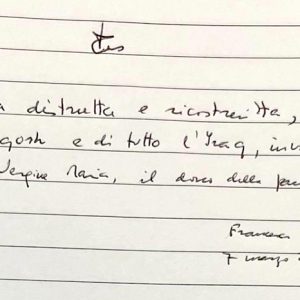 a distrutta e ricostruita,
gosh e di tutto l'Iraq, inv
Vergine Maria, il dono della pac
Francesco
7 marzo